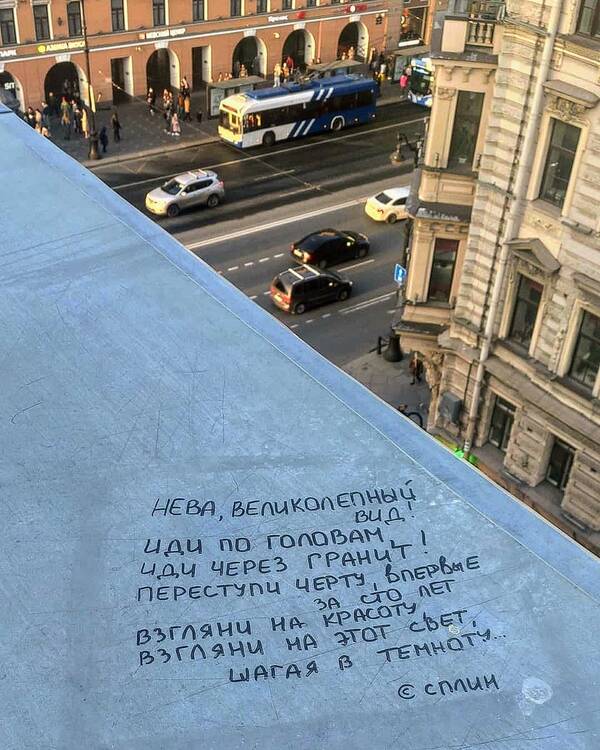 НЕВА, ВЕЛИКОЛЕПНЫЙ
ВИД!
ИДИ ПО ГОЛОВАМ,
ИДИ ЧЕРЕЗ ГРАНИТ!
ПЕРЕСТУПИ ЧЕРТУ, ВПЕРВЫЕ
ЗА СТО ЛЕТ
ВЗГЛЯНИ НА КРАСОТУ
ВЗГЛЯНИ НА ЭТОТ СВЕТ,
ШАГАЯ В ТЕМНОТУ...
© СПЛИН